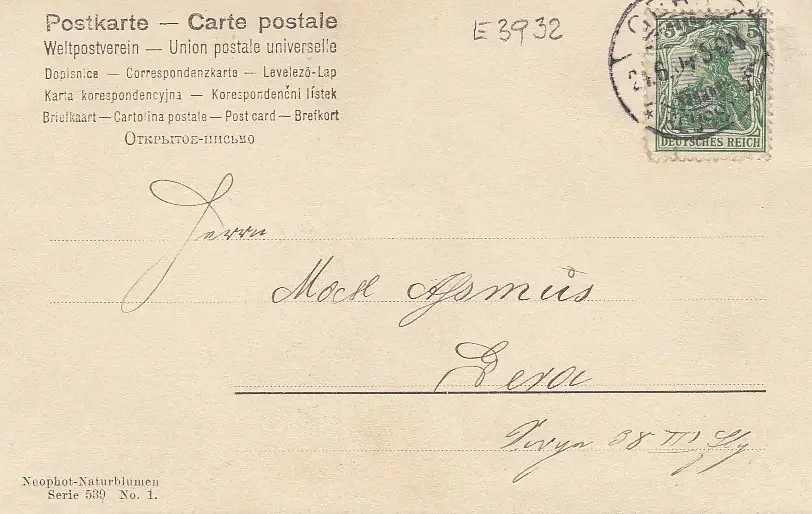 Postkarte — Carte postale
Weltpostverein — Union postale universelle
Dopisnice — Correspondenzkarte — Levelező-Lap
Karta korespondencyjna — Korespondenčni lístek
Briefkaart — Cartolina postale — Post card — Brefkort
Открытое-письмо
E 3932
5 5
DEUTSCHES REICH
Herrn
Asmus
Gera
III
Neophot-Naturblumen
Serie 539 No. 1.